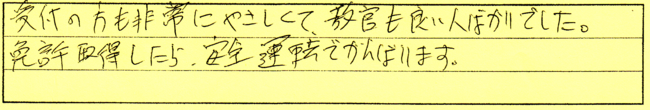 受付の方も非常にやさしくて、教官も良い人ばかりでした。
免許取得したら、安全運転でがんばります。